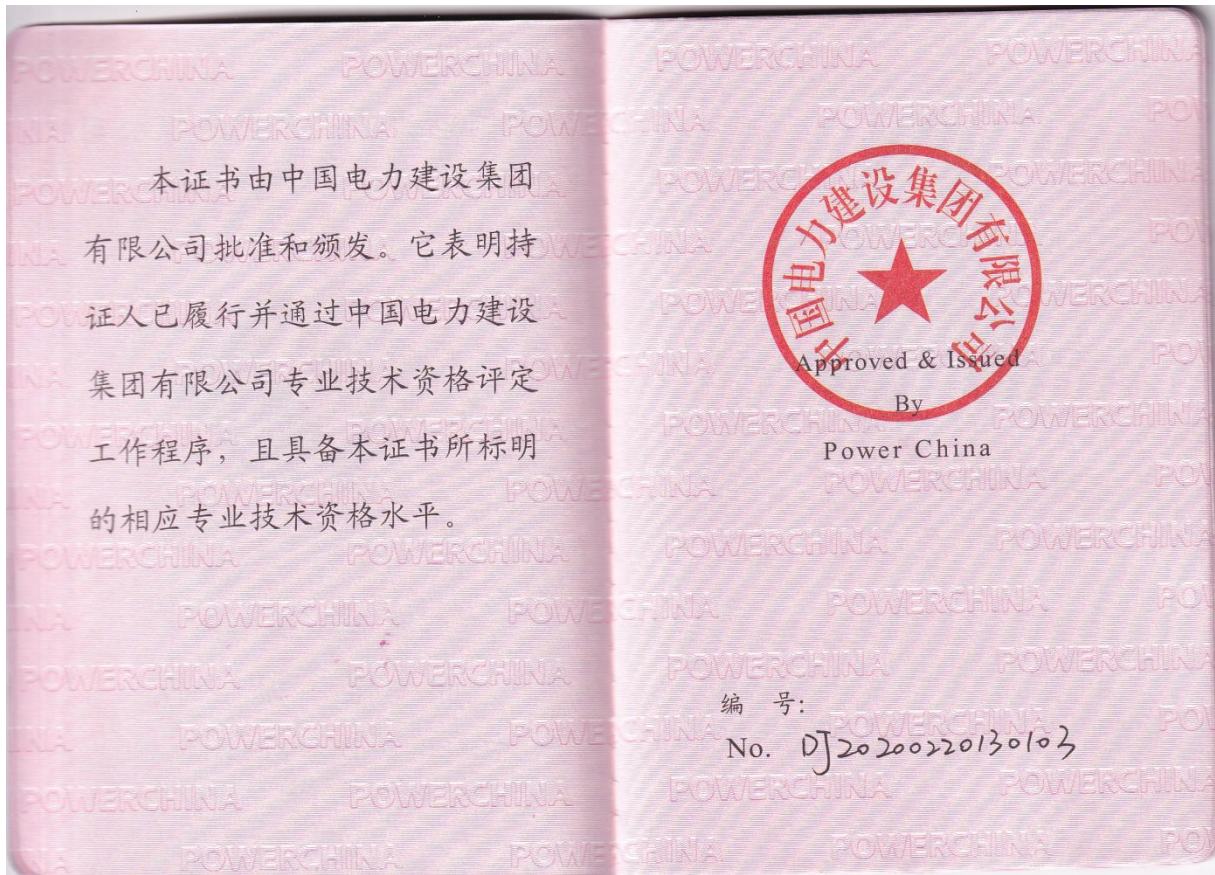 本证书由中国电力建设集团
有限公司批准和颁发。它表明持
证人已履行并通过中国电力建设
集团有限公司专业技术资格评定
工作程序，且具备本证书所标明
的相应专业技术资格水平。
中国电力建设集团有限公司
Approved & Issued
By
Power China
编 号:
No. DJ20200220130103
POWERCHINA